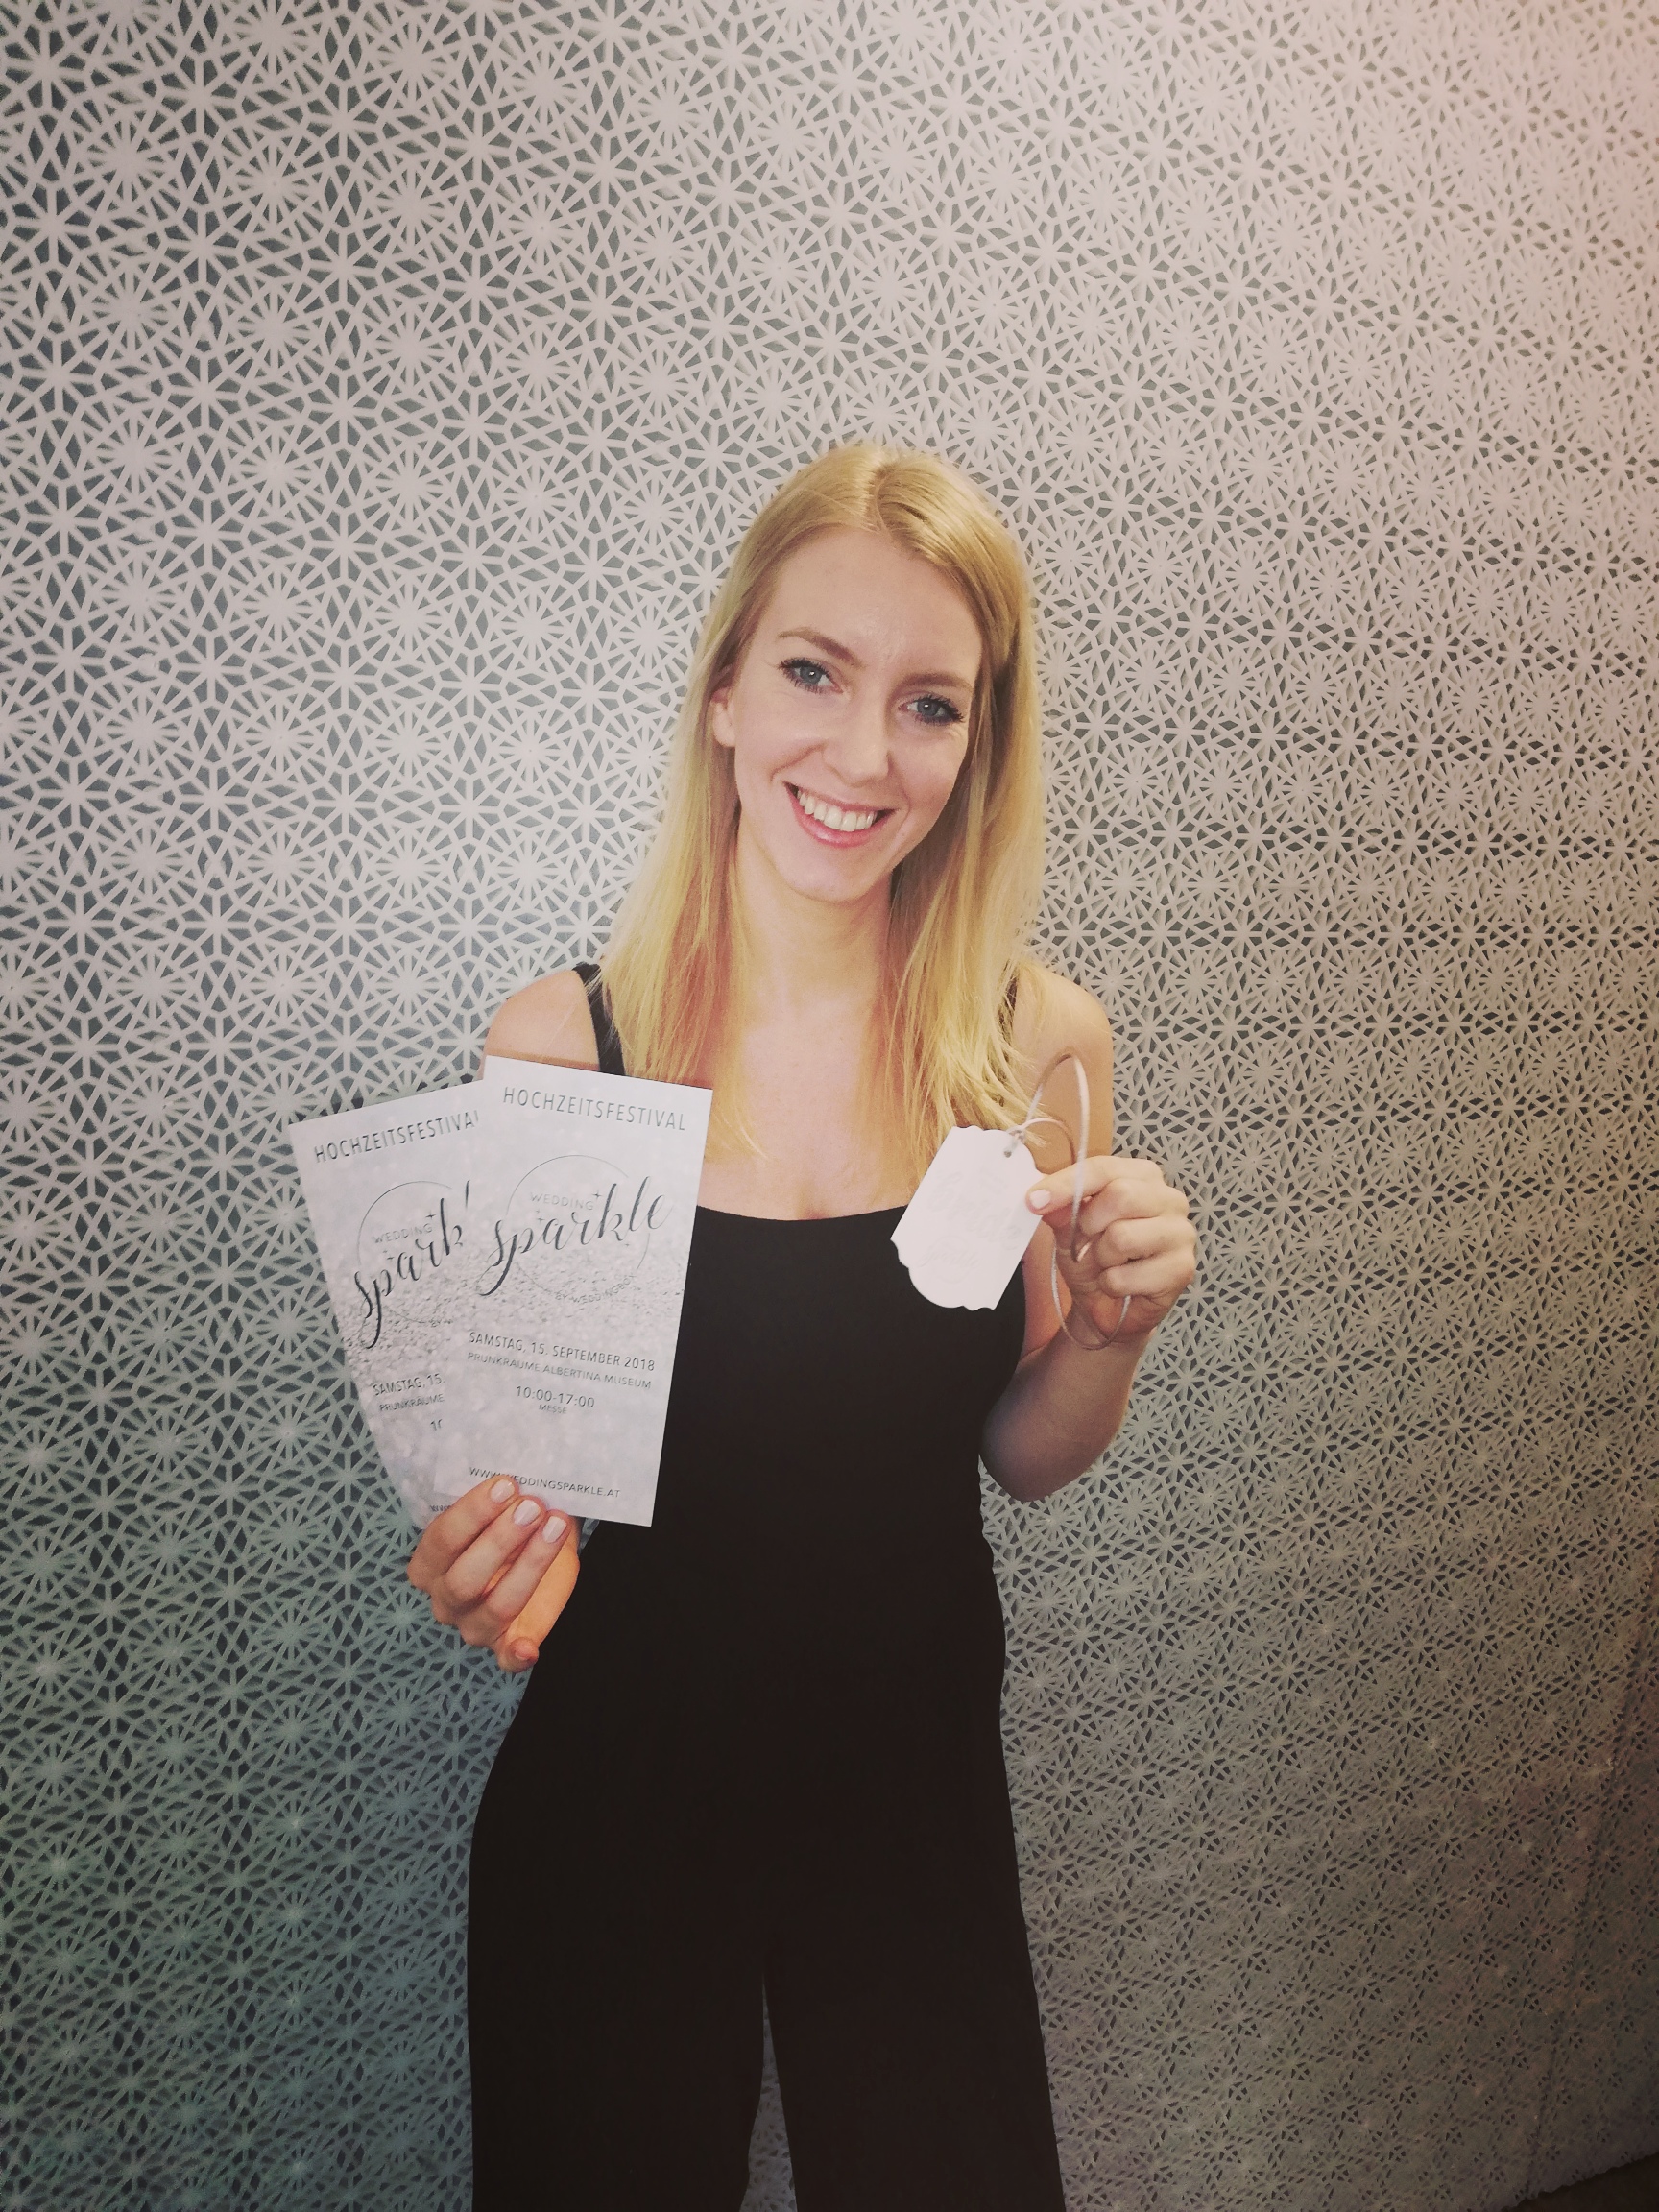 HOCHZEITSFESTIVAL
WEDDING
spark
SAMSTAG, 15.
PRUNKRÄUME
HOCHZEITSFESTIVAL
WEDDING
sparkle
SAMSTAG, 15. SEPTEMBER 2018
PRUNKRÄUME ALBERTINA MUSEUM
10:00-17:00
MESSE
WWW.WEDDINGSPARKLE.AT